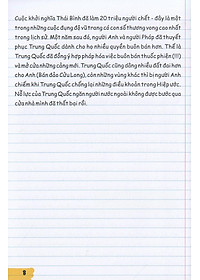 Cuộc khởi nghĩa Thái Bình đã làm 20 triệu người chết - đây là một
trong những cuộc đụng độ vũ trang có con số thương vong cao nhất
trong lịch sử. Một năm sau đó, người Anh và người Pháp đã thuyết
phục Trung Quốc dành cho họ nhiều quyền buôn bán hơn. Thế là
Trung Quốc đã đồng ý hợp pháp hóa việc buôn bán thuốc phiện (!!!)
và mở cửa những cảng mới. Trung Quốc cũng dâng nhiều đất đai hơn
cho Anh (Bán đảo Cửu Long), còn những vùng khác thì bị người Anh
chiếm khi Trung Quốc chống lại những điều khoản trong Hiệp ước.
Nỗ lực của Trung Quốc ngăn người nước ngoài không được bước qua
cửa nhà mình đã thất bại rồi.